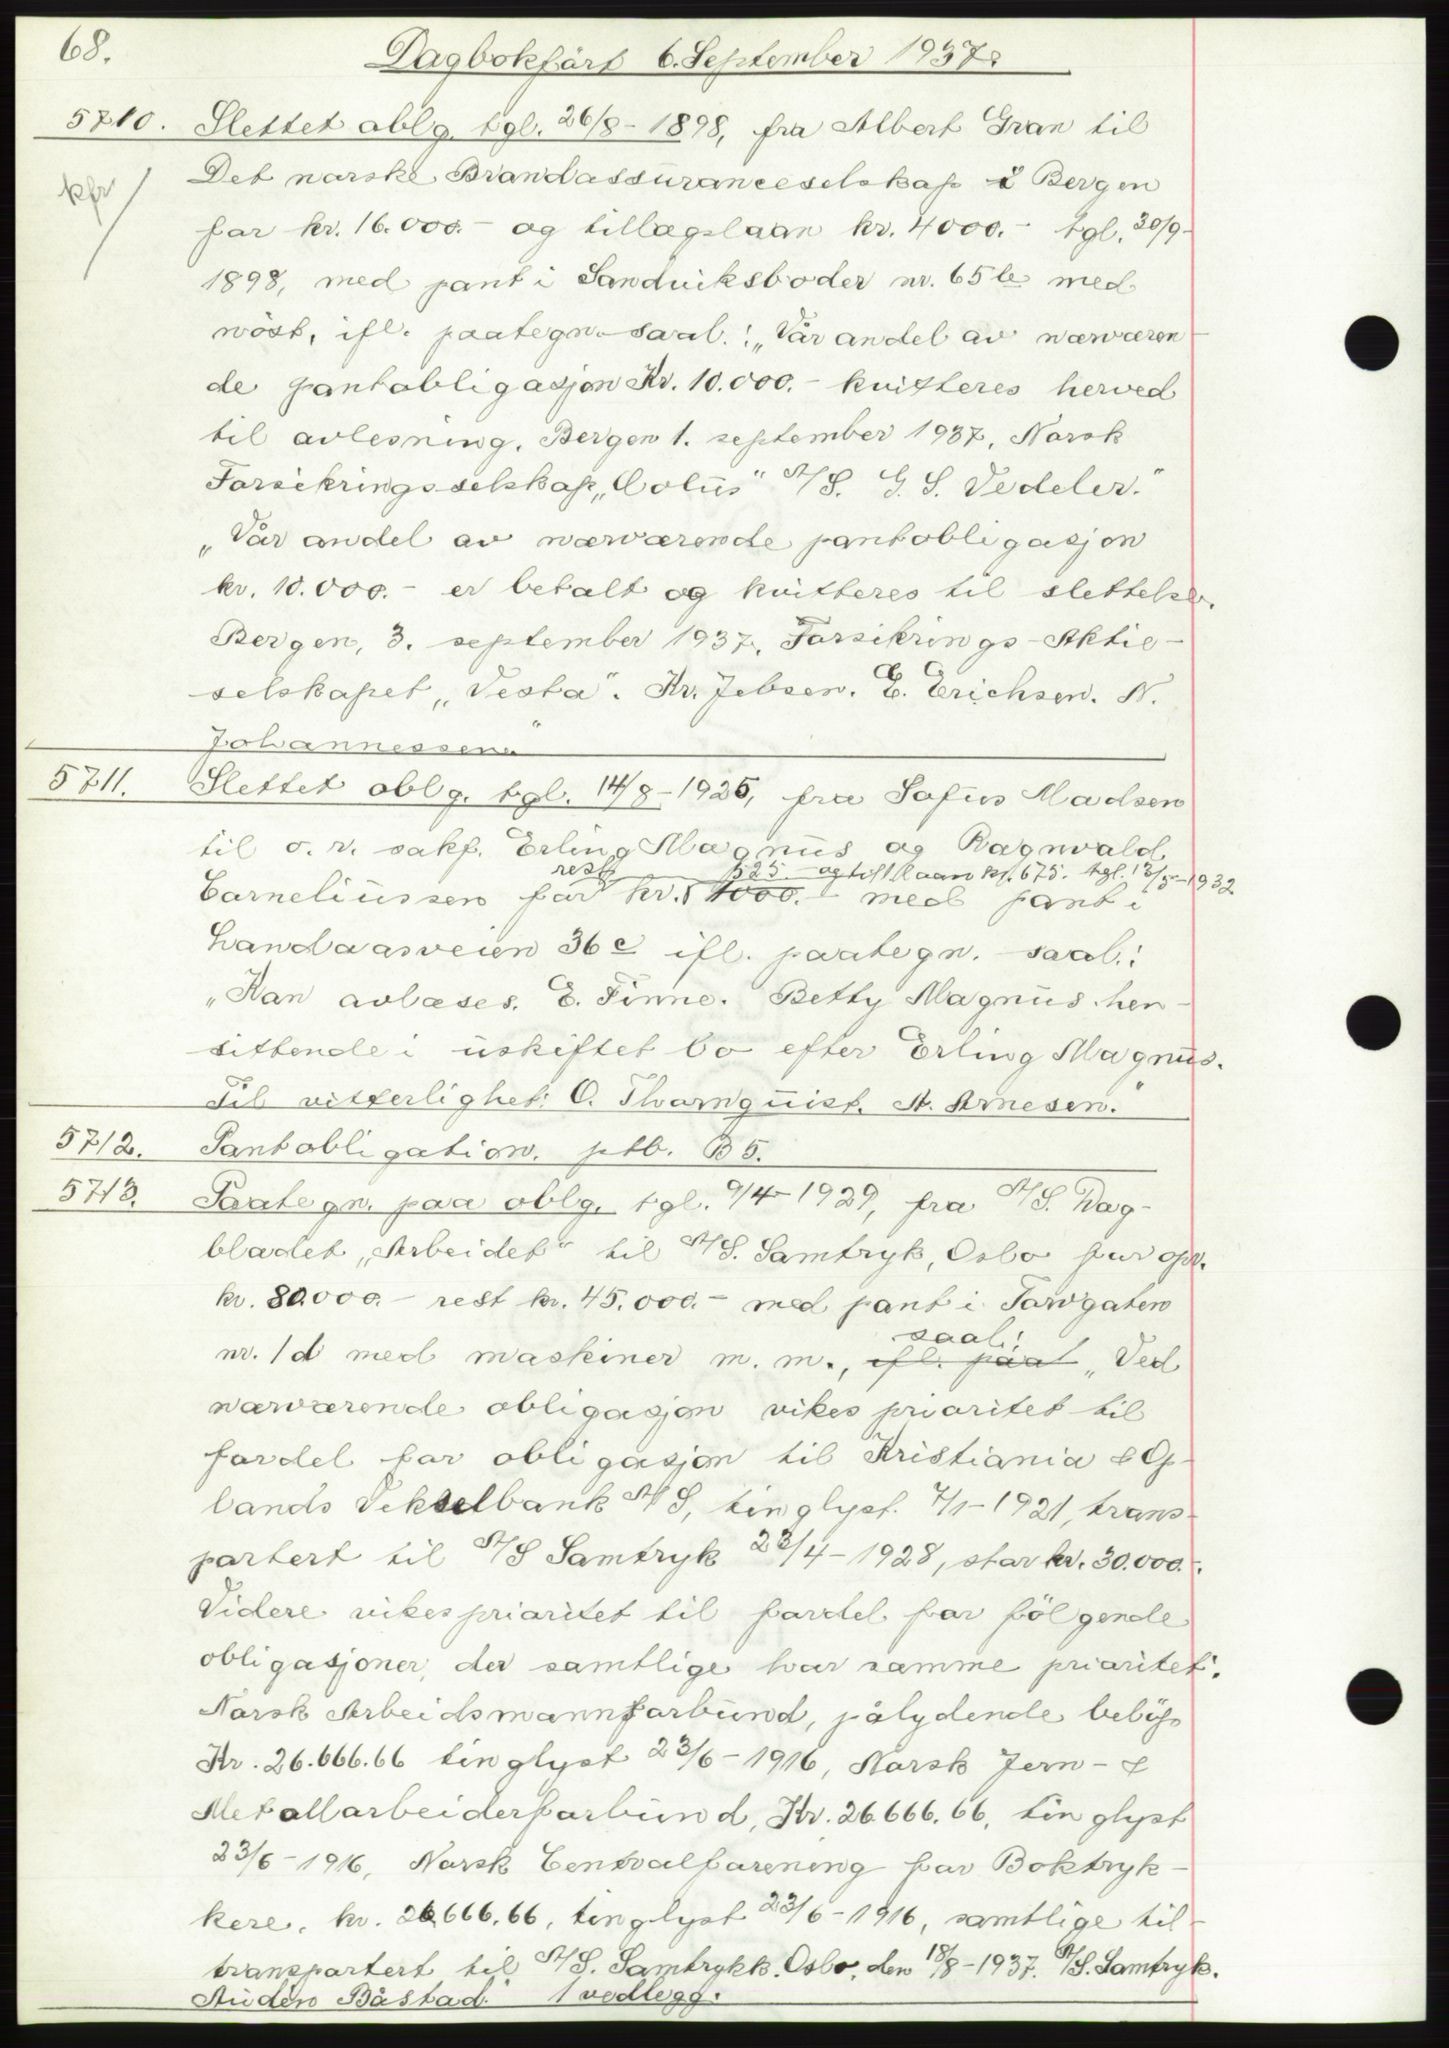 68.
Dagbokført 6. September 1937.
5710. Slettet oblg. tgl. 26/8-1898, fra Albert Gran til
kfr
Det norske Brandassuranceselskap i Bergen
for kr. 16.000.- og tillægslaan kr. 4000.- tgl. 30/9-
1898, med pant i Sandviksboder nr. 65 b med
nöst, ifl. paategn. saal.: „Vår andel av nærværen
de pantobligasjon Kr. 10.000.- kvitteres herved
til avlesning. Bergen 1. september 1937. Norsk
Forsikringsselskap „Æolus" A/S. G. S. Vedeler."
„Vår andel av nærværende pantobligasjon
kr. 10.000.- er betalt og kvitteres til slettelse.
Bergen, 3. september 1937. Forsikrings-Aktie-
selskapet „Vesta". Kr. Jebsen. E. Erichsen. N.
Johannessen."
5711. Slettet oblg. tgl. 14/8-1925, fra Sofus Madsen
til o. r. sakf. Erling Magnus og Ragnvald
rest 525.- og till.laan kr. 675. tgl. 13/5-1932
Corneliussen for kr. 1000.- med pant i
Landaasveien 36 c ifl. paategn. saal.:
„Kan avlæses. E. Finne. Betty Magnus hen-
sittende i uskiftet bo efter Erling Magnus.
Til vitterlighet: O. Thornquist. A. Arnesen."
5712. Pantobligation. ptb. B 5.
5713. Paategn. paa oblg. tgl. 9/4-1929, fra A/S. Dag-
bladet „Arbeidet" til A/S. Samtryk, Oslo for opr.
kr. 80.000.- rest kr. 45.000.- med pant i Torvgaten
saal.:
nr. 1 d med maskiner m. m., ifl. paat „Ved
nærværende obligasjon vikes prioritet til
fordel for obligasjon til Kristiania & Op-
lands Vekselbank A/S, tinglyst 7/1-1921, trans-
portert til A/S Samtryk 23/4-1928, stor kr. 30.000.-.
Videre vikes prioritet til fordel for fölgende
obligasjoner, der samtlige har samme prioritet:
Norsk Arbeidsmannsforbund, pålydende belöp
Kr. 26.666.66 tinglyst 23/6-1916, Norsk Jern- &
Metallarbeiderforbund, Kr. 26.666.66, tinglyst
23/6-1916, Norsk Centralforening for Boktryk-
kere, kr. 26.666.66, tinglyst 23/6-1916, samtlige til-
transportert til A/S. Samtrykk. Oslo, den 18/8-1937. A/S. Samtryk.
Auden Båstad." 1 vedlegg.